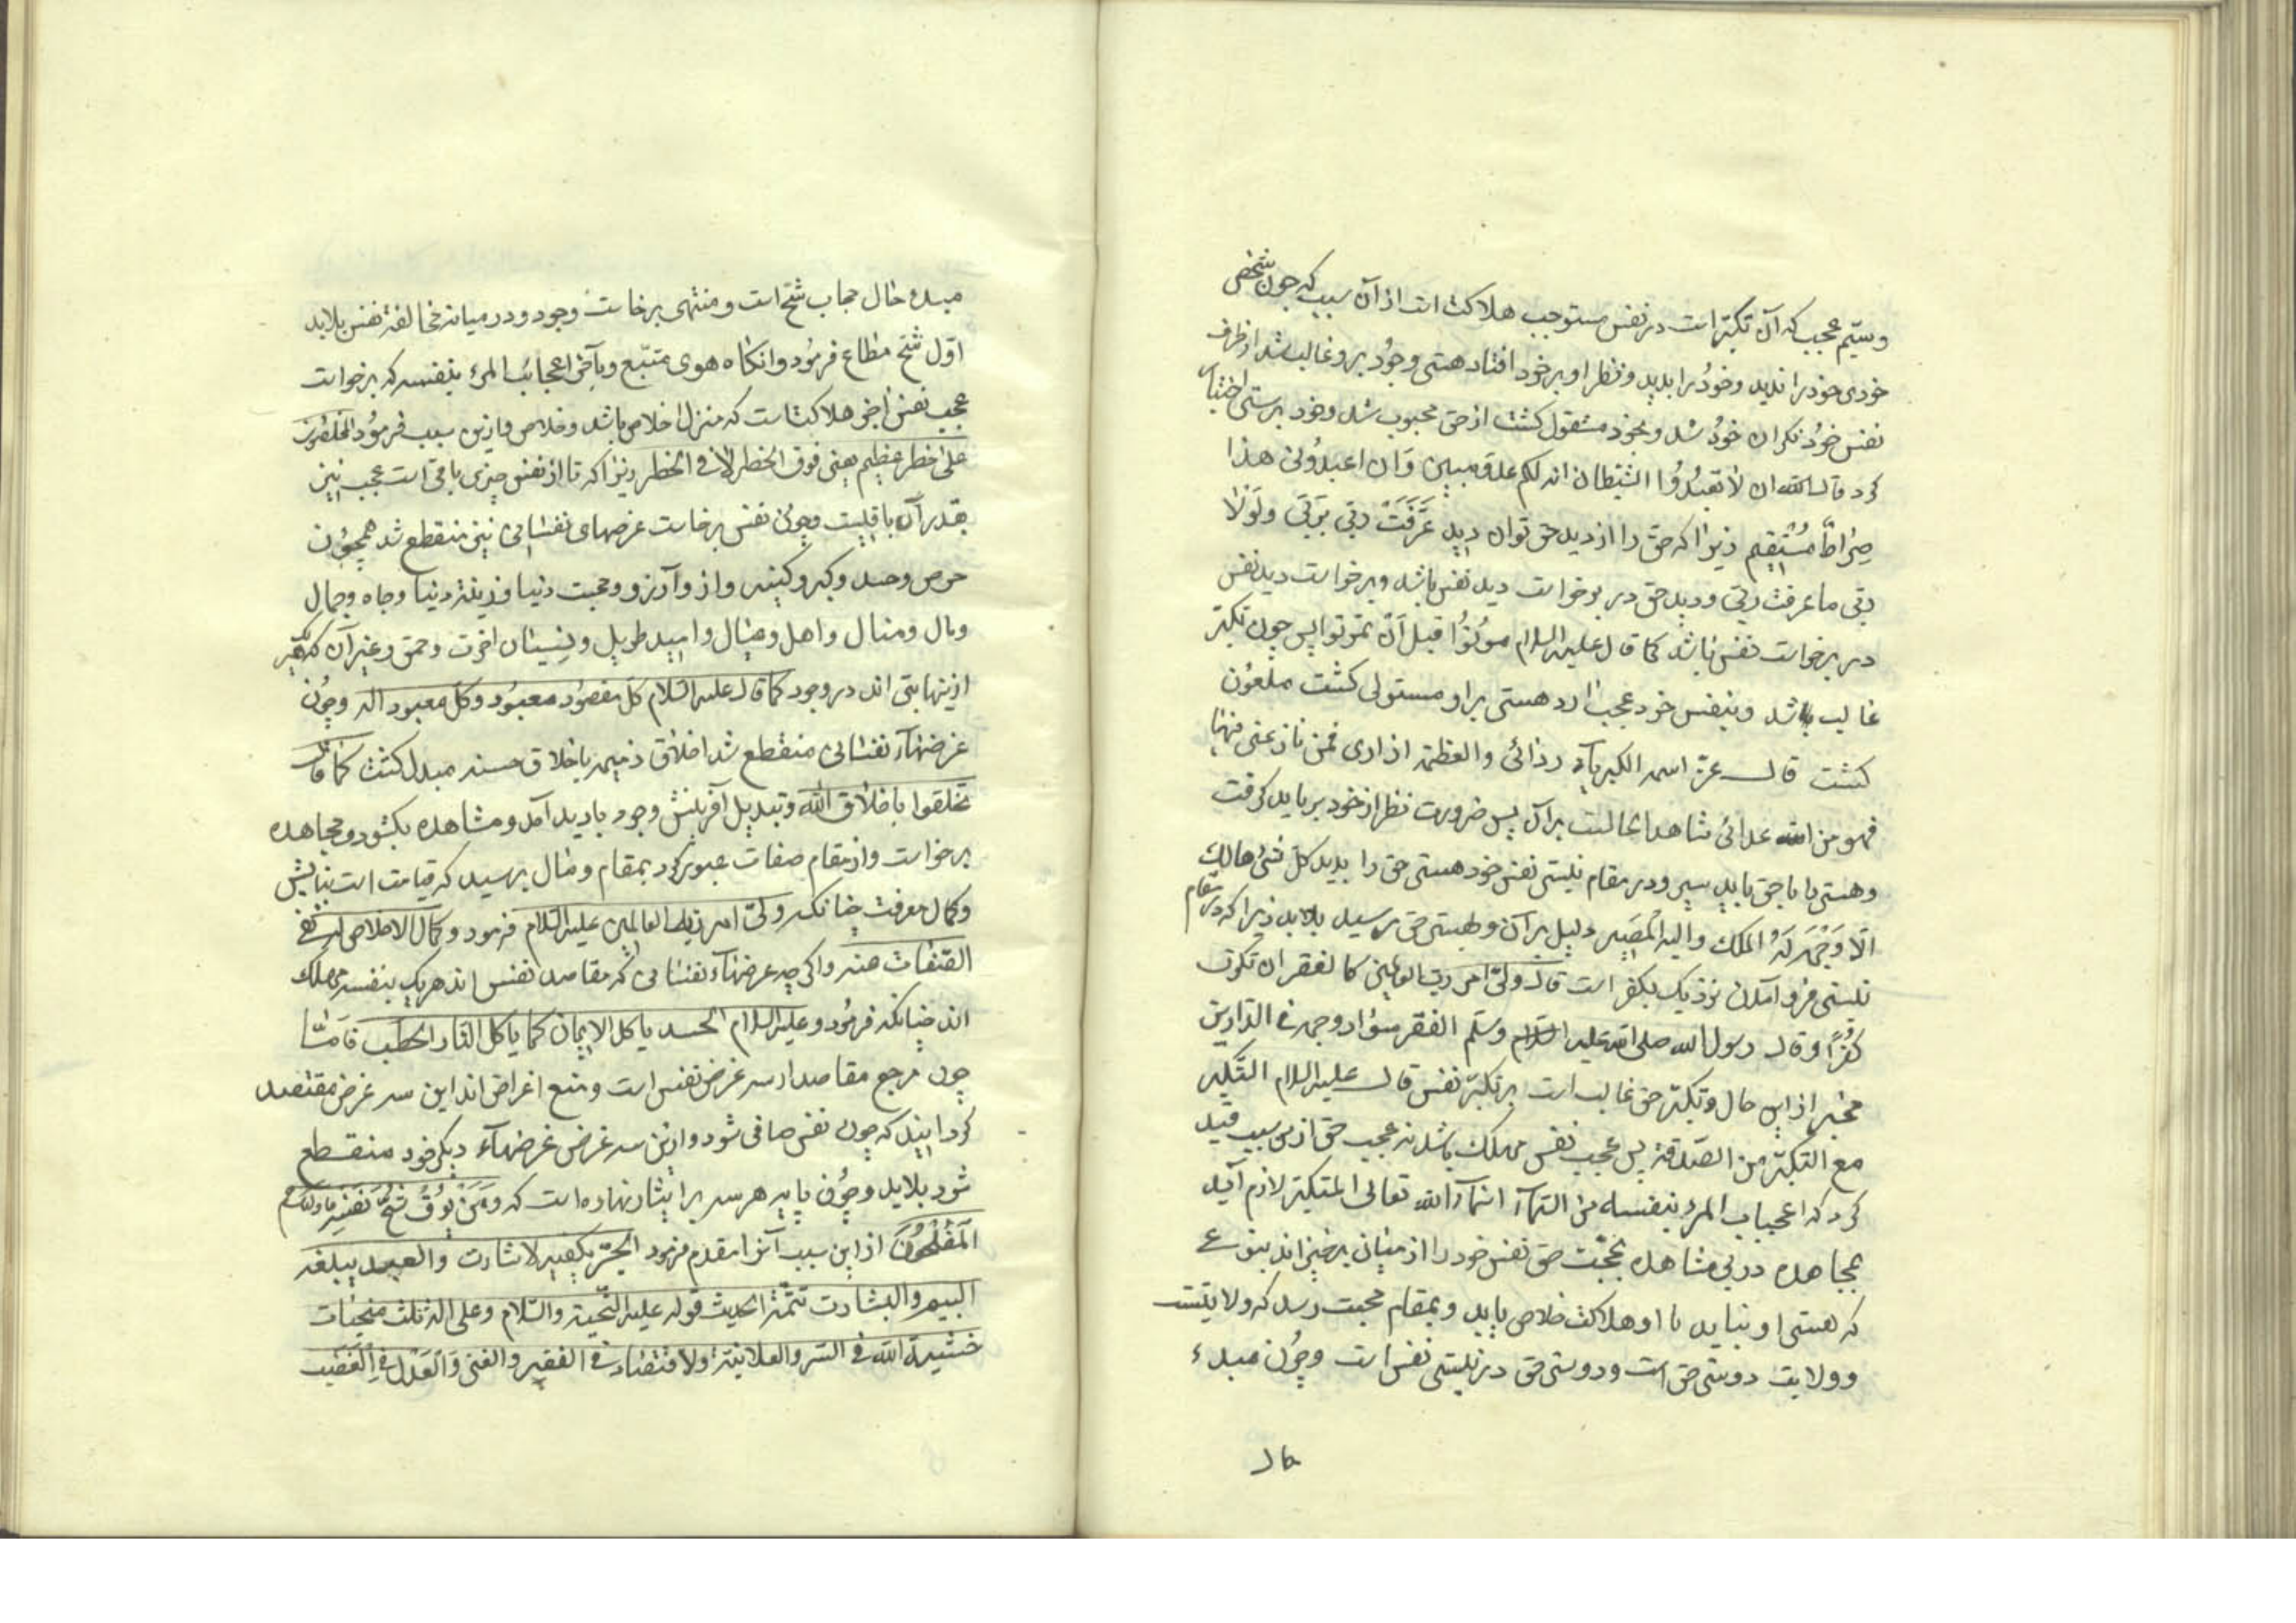 وسیّم عجب که آن تکبّر است در نفس مستوجب هلاکت است از آن سبب که چون شخصی
خودی خود را ندید وخود را بدید ونظر او بر خود افتاد هستی وجود برو غالب شد از طرف
نفس خود نکران خود شد وبخود مشغول کشت از حق محجوب شد وخود پرستی اختیار
کرد قال الله ان لا تعبدوا الشیطان انه لکم عدوّ مبین وان اعبدونی هذا
صراط مستقیم زیرا که حق را از دید حق توان دید عرفت ربّی بربّی ولولا
ربّی ما عرفت ربّی ودید حق در برخواست دید نفس باشد وبرخواست دید نفس
در برخواست نفس باشد کما قال علیه السلام موتوا قبل ان تموتوا پس چون تکبّر
غالب باشد وبنفس خود عجب آرد هستی برو مستولی کشت ملعون
کشت قال عزّ اسمه الکبریآء ردائی والعظمة ازاری فمن نازعنی فیهما
فهو من الله عدائی شاهد ابحالست بر آن پس ضرورت نظر از خود بر باید کرفت
وهستی را با حق باید سپرد ودر مقام نیستی نفس خود هستی حق را بدید کلّ شئ هالک
الّا وجهه له الملک والیه المصیر دلیل بر آن وبهستی حق برسید بلا بد زیرا که در مقام
نیستی فرو آمدن نزدیک بکفر است قال ولیّ امر ربّ العالمین کاد الفقر ان تکون
کفرًا وقال رسول الله صلی الله علیه السلام وسلّم الفقر سواد وجه فی الدارین
مخبر از این حال وتکبّر حق غالب است بر تکبّر نفس قال علیه السلام التکبّر
مع التکبّر من الصدقة پس عجب نفس مهلک باشد نه عجب حق ازین سبب قید
کرد که اعجاب المرء بنفسه من الله تعالی المتکبّر لازم آید
بمجاهده در پی مشاهده بمحبّت حق نفس خود را از میان بر خیزاند بنوعی
که هستی او نیاید تا او هلاکت خلاص یابد وبمقام محبت رسد که ولایتست
وولایت دوستی حق است ودوستی حق در نیستی نفس است وچون مبدء
حال
مبدء حال حجاب شحّ است ومنتهی برخاست وجود ودر میانه مخالفة نفس بلابد
اوّل شحّ مطاع فرمود وانکاه هوی متّبع وبآخر اعجاب المرء بنفسه که برخواست
عجب نفس آخر هلاکتاست که منزل اخلاص باشد وخلاص وازین سبب فرمود المخلصون
علی خطر عظیم یعنی فوق الخطر لا فی الخطر زیرا که تا از نفس چیزی باقی است عجب نیز
بقدر آن باقیست وچون نفس برخاست غرضهای نفسانی نیز منقطع شد همچون
حرص وحسد وکبر وکینه واز وآرزو ومحبت دنیا وزینة دنیا وجاه وجمال
ومال ومنال واهل وعیال وامید طویل ونسیان اخرت وحمق وغیر آن که
ازینها بتی اند در وجود کما قال علیه السّلام کلّ مقصود معبود وکلّ معبود اله وچون
غرضهآء نفسانی منقطع شد اخلاق ذمیمه باخلاق حسنه مبدل کشت کما قال
تخلقوا باخلاق الله وتبدیل آفرینش وجود بادید آمد ومشاهده بکشود ومجاهده
برخواست واز مقام صفات عبور کرد بمقام وصال برسید که قیامت است
وکمال معرفت چنانکه ولیّ امر ربّ العالمین علیه السّلام فرمود وکمال الاخلاص له نفی
الصّفات عنه واکر چه غرضهآء نفسانی که مقاصد نفس اند هر یک بنفسه مهلک
اند چنانکه فرمود وعلیه السلام الحسد یاکل الایمان کما یاکل النّار الحطب فامّا
چون مرجع مقاصد از سه غرض نفس است ومنبع اغراض اند این سه غرض مقتصد
کردانیند که چون نفس صافی شود وازین سه غرض غرضهآء دیکر خود منقطع
شود بلابد وچون پایه هر سه بر ایثار نهاده است که ومن یوق شحّ نفسه فاولئک هم
المفلحون از این سبب آنرا مقدم فرمود الحرّ یکفیه الاشارت والعبد یبلغه
البیّن والبشارت تتمّة الحدیث قوله علیه التّحیة والسّلام وعلی اله ثلث منجیات
خشیة الله فی السّر والعلانیة والاقتصاد فی الفقیر والغنی والعدل فی الغضب